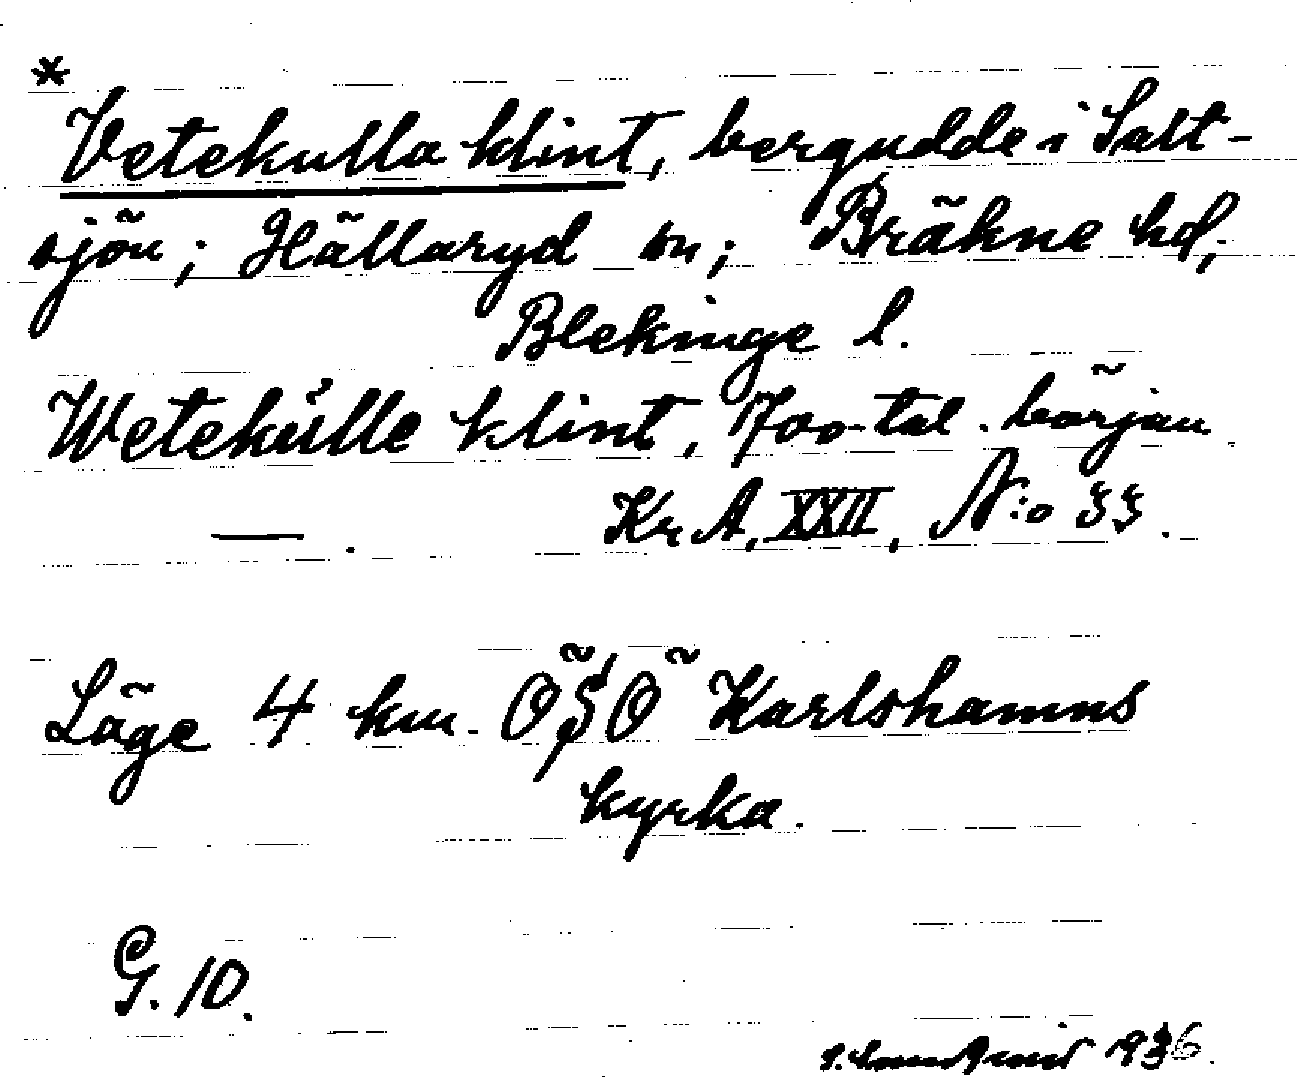 *
Vetekulla klint, bergudde i Salt-
sjön; Hällaryd sn; Bräkne hd;
Blekinge l.
Wetekülle klint, 1700-tal. början
— . Kr A, XXII, N:o 33.
Läge 4 km. OSO Karlshamns
kyrka.
G. 10.
1936.